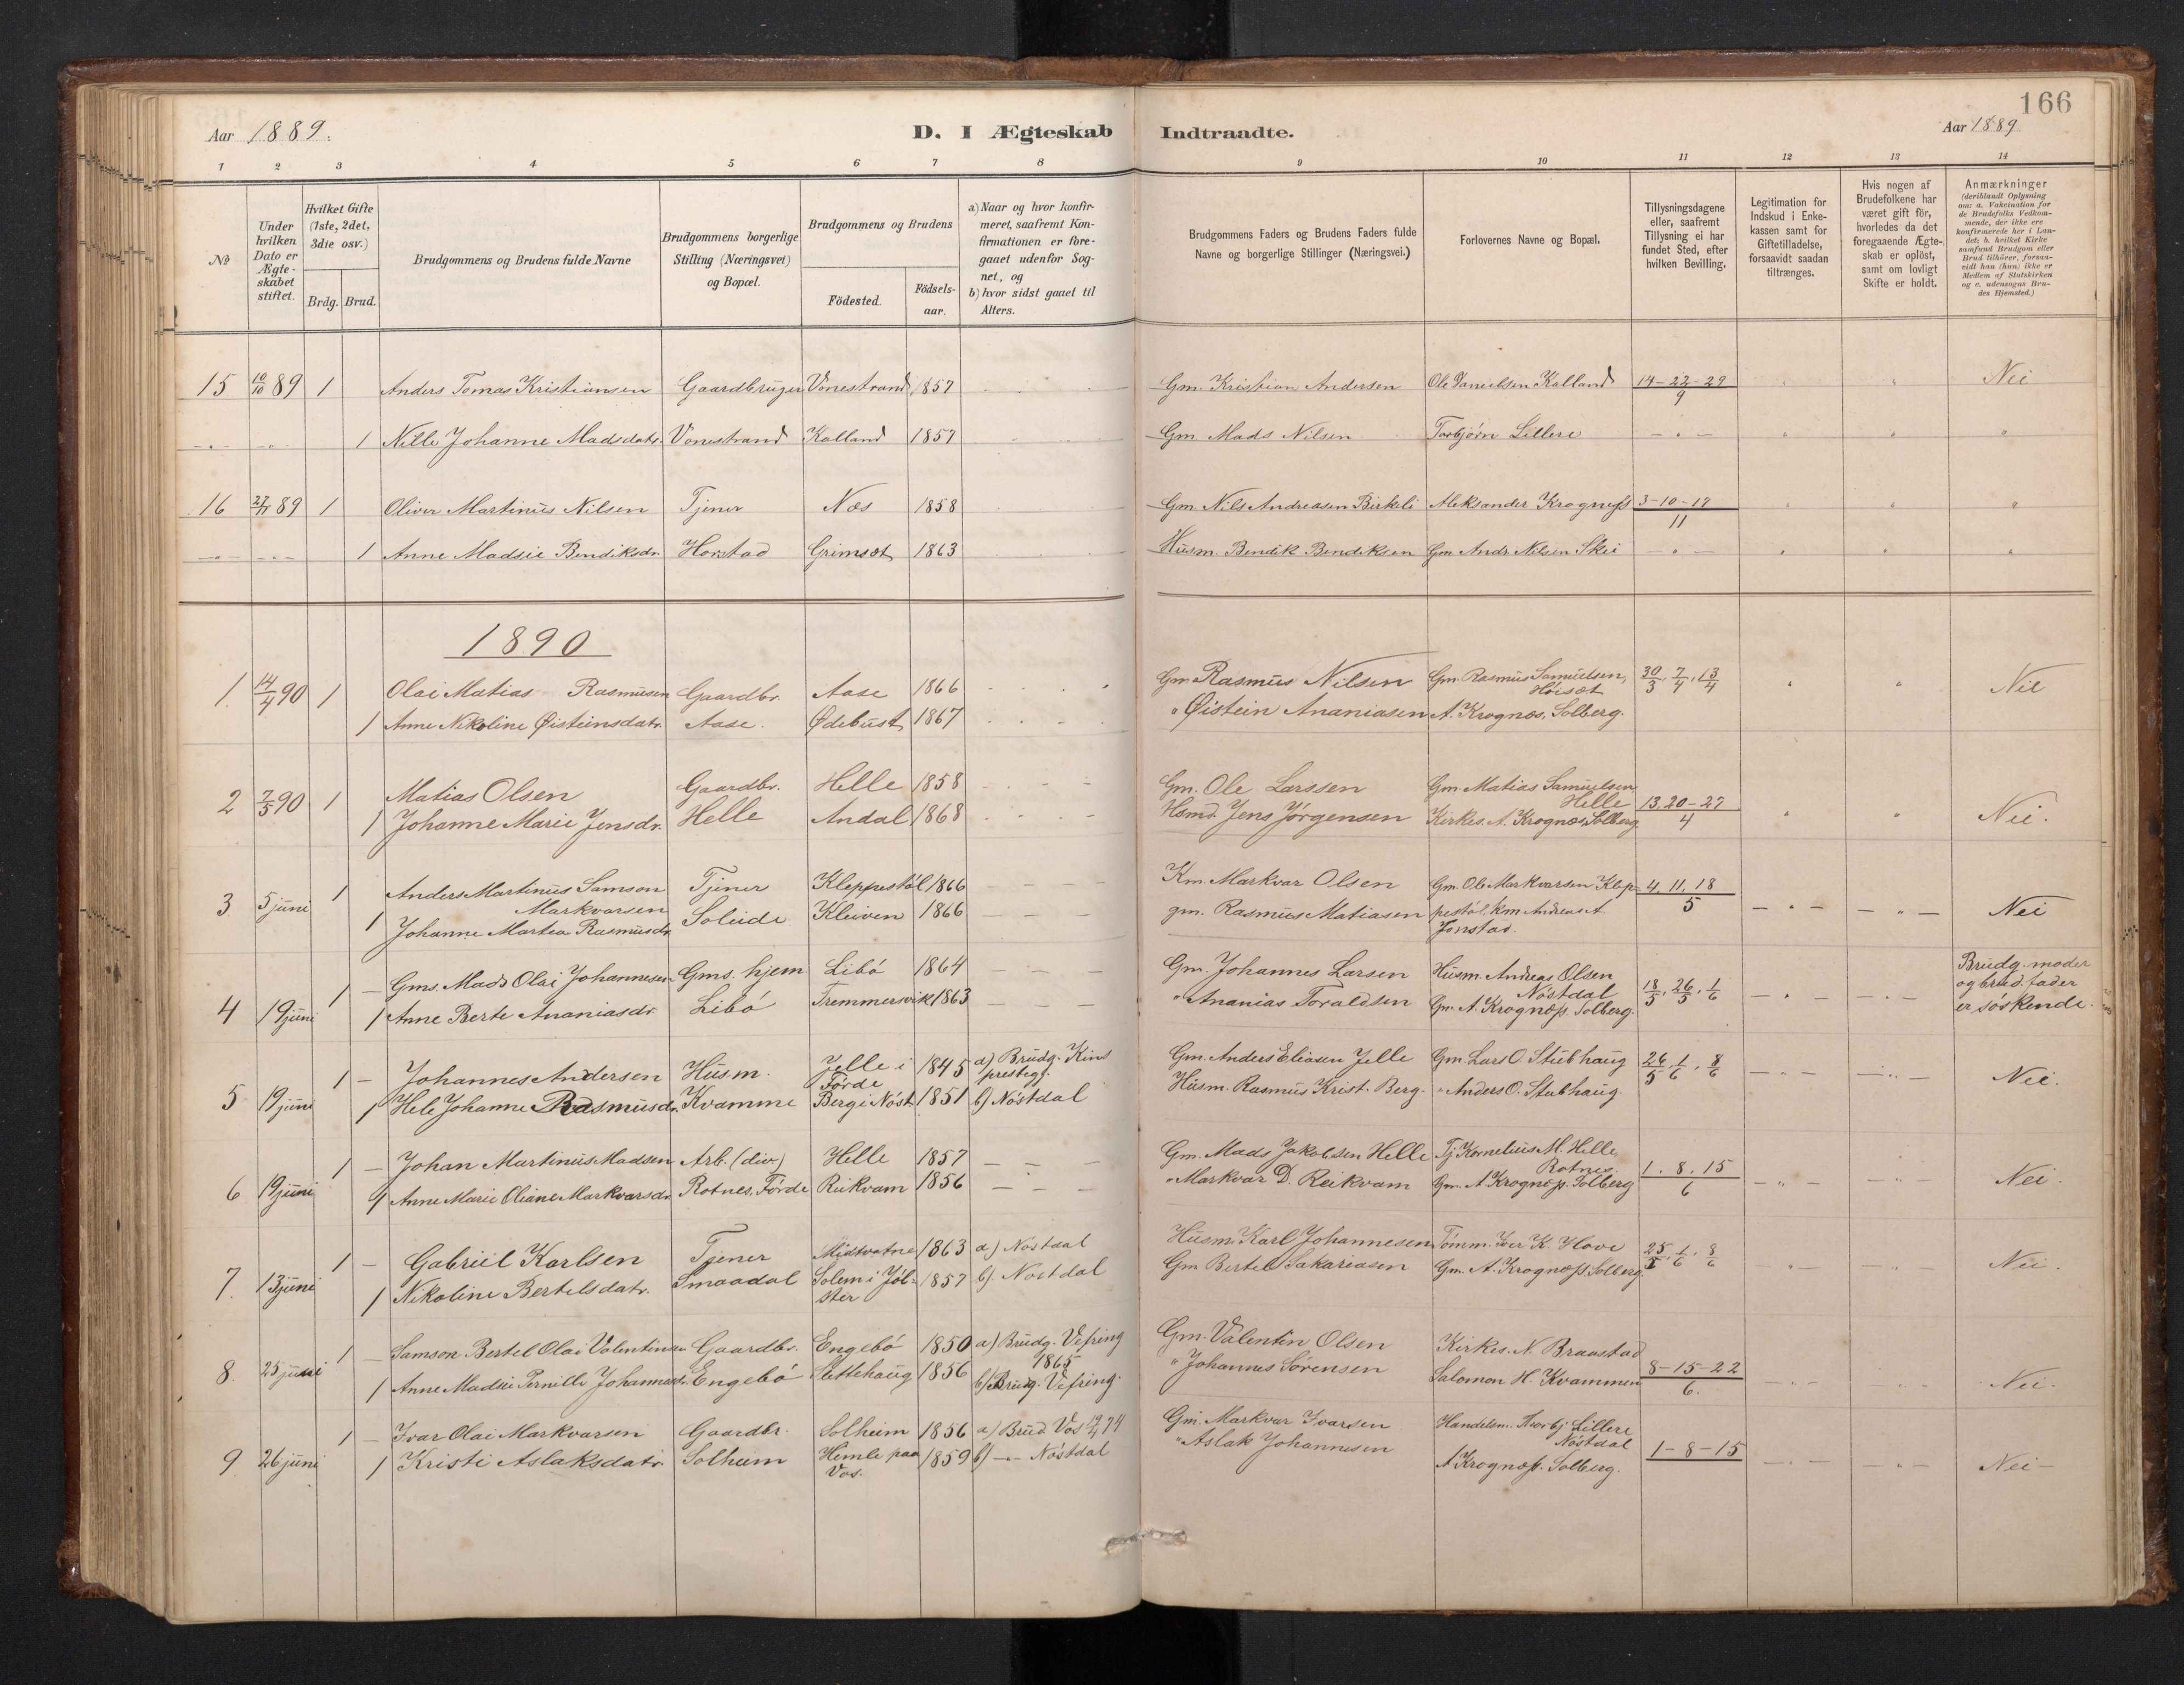 166
Aar 1889. D. I Ægteskab Indtraadte. Aar 1889.
1 2 3 4 5 6 7 8 9 10 11 12 13 14
No
Under hvilken Dato er Ægteskabet stiftet.
Hvilket Gifte (1ste, 2det, 3die osv.)
Brdg. Brud.
Brudgommens og Brudens fulde Navne
Brudgommens borgerlige Stilling (Næringsvei) og Bopæl.
Brudgommens og Brudens
Födested. Födsels-aar.
a) Naar og hvor konfirmeret, saafremt Konfirmationen er foregaaet udenfor Sognet, og
b) hvor sidst gaaet til Alters.
Brudgommens Faders og Brudens Faders fulde Navne og borgerlige Stillinger (Næringsvei.)
Forlovernes Navne og Bopæl.
Tillysningsdagene eller, saafremt Tillysning ei har fundet Sted, efter hvilken Bevilling.
Legitimation for Indskud i Enkekassen samt for Giftetilladelse, forsaavidt saadan tiltrænges.
Hvis nogen af Brudefolkene har været gift för, hvorledes da det foregaaende Ægteskab er oplöst, samt om lovligt Skifte er holdt.
Anmærkninger (deriblandt Oplysning om: a. Vakcination for de Brudefolks Vedkommende, der ikke ere konfirmerede her i Landet; b. hvilket Kirkesamfund Brudgom eller Brud tilhörer, forsaavidt han (hun) ikke er Medlem af Statskirken og c. udensogns Brudes Hjemsted.)
15 10/10 89 1 Anders Tomas Kristiansen Gaardbruger Vonestrand 1857 Gm. Kristian Andersen Ole Danielsen Kalland 14-22-29/9 Nei
1 Nille Johanne Madsdatr. Vonestrand Kalland 1857 Gm. Mads Nilsen Torbjørn Lillere
16 27/11 89 1 Oliver Martinus Nilsen Tjener Næs 1858 Gm. Nils Andreasen Birkeli Aleksander Krogness 3-10-17/11
1 Anne Madsie Bendiksdr. Horstad Grimset 1863 Husm. Bendik Bendiksen Gm. Andr. Nilsen Skei
1890
1. 14/4 90 1 Olai Matias Rasmusen Gaardbr. Aase 1866 Gm Rasmus Nilsen Gm. Rasmus Samuelsen, Hörset 30/3, 7/4, 13/4 Nei
1 Anne Nikoline Øisteinsdatr. Aase. Ødebust 1867 " Øistein Ananiasen A. Krognes, Solberg.
2 7/5 90 1 Matias Olsen Gaardbr. Helle 1858 Gm. Ole Larssen Gm Matias Samuelsen Helle 13.20-27/4 Nei.
1 Johanne Marie Jensdr. Helle Andal 1868 Hsmd. Jens Jörgensen Kirkes. A. Krognes, Solberg.
3 5 juni 1 Anders Martinus Samson Markvorsen Tjener Kleppestöl 1866 Km. Markvar Olsen Gm. Ole Markvarsen Klep- 4, 11, 18/5 Nei
1 Johanne Martea Rasmusdr. Soleide Kleiven 1866 gm. Rasmus Matiasen pestöl. km Andreas A. Jonstad.
4 19 juni 1 Gms. Mads Olai Johannesen Gms. hjem Libö 1864 Gm. Johannes Larsen Husm. Andreas Olsen Nöstdal 18/5, 26/5, 1/6 Brudg. moder og brud. fader er söskende.
1 Anne Berte Ananiasdr. Libö Tremmersvik 1863 " Ananias Toraldsen Gm. A. Krogness. Solberg.
5 19 juni 1 Johannes Andersen Husm. Jelle i Förde 1845 a) Brudg. Kinns prestegj. Gm. Anders Eliasen Jelle Gm. Lars O. Stubhaug 26/5, 1/6, 8/6 Nei.
1 Hele Johanne Rasmusdr. Kvamme Berg i Nöst. 1851 b) Nöstdal Husm. Rasmus Krist. Berg. " Anders O. Stubhaug.
6 19 juni 1 Johan Martinus Madsen Arb. (div) Helle 1857 Gm. Mads Jakobsen Helle Tj. Kornelius M. Helle Rotnes. 1. 8. 15/6 Nei.
1 Anne Marie Oliane Markvarsdr. Rotnes, Förde Reikvam 1856 " Markvar D. Reikvam Gm. A. Krogness. Solberg
7. 13 juni 1 Gabriel Karlsen Tjener Midtvatne 1863 a) Nöstdal Husm. Karl Johannesen Tömm. Iver K. Hove 25/5, 1/6, 8/6 Nei.
1 Nikoline Bertelsdatr. Smaadal Solem i Jölster 1857 b) Nöstdal Gm Bertel Sakariasen Gm. A. Krogness. Solberg.
8. 25 juni 1 Samson Bertel Olai Valentinsen Gaardbr. Engebö 1850 a) Brudg. Vefring 1865 Gm. Valentin Olsen Kirkes. N. Braastad 8-15-22/6. Nei.
1 Anne Madsie Pernille Johannesdr. Engebö Slettehaug 1856 b) Brudg. Vefring. " Johannes Sörensen Salomon H. Kvammen
9 26 juni 1 Ivar Olai Markvorsen Gaardbr. Solheim 1856 a) Brud Vos 19/4 74 Gm. Markvar Ivarsen Handelsm. Thorbj. Lillere Nöstdal 1-8-15 Nei-
1 Kristi Aslaksdatr. Solheim Himle paa Vos. 1859 b) -"- Nöstdal " Aslak Johannesen A Krogness. Solberg.